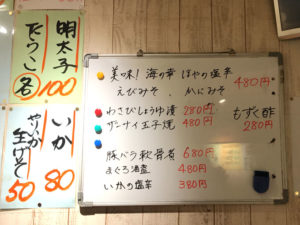 明太子
だうこ 各 100
いか 80
やりいか
生げそ 50
美味！海の幸 ほやの塩辛
えびみそ、かにみそ 480円
わさびしょうゆ漬 280円
ザンナイ玉子焼 480円
もずく酢
280円
豚バラ軟骨煮 680円
まぐろ酒盗 480円
いかの塩辛 380円